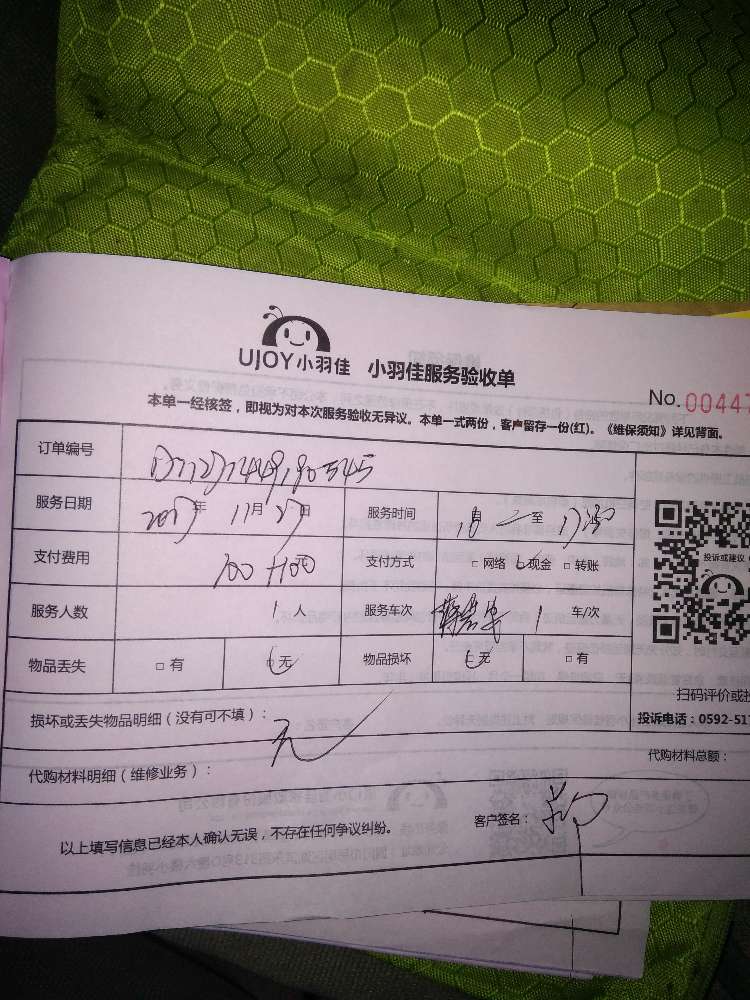 UJOY小羽佳 小羽佳服务验收单
No. 00447
本单一经核签，即视为对本次服务验收无异议。本单一式两份，客户留存一份(红)。《维保须知》详见背面。
订单编号
服务日期 2017年 11月 27日 服务时间 自 至
支付费用 100+100元 支付方式 □ 网络 □ 现金 □ 转账
服务人数 1 人 服务车次 1 车/次
物品丢失 □ 有 □ 无 物品损坏 □ 无 □ 有
投诉或建议
扫码评价或投
投诉电话：0592-517
损坏或丢失物品明细（没有可不填）： 无
代购材料明细（维修业务）： 代购材料总额：
以上填写信息已经本人确认无误，不存在任何争议纠纷。 客户签名：